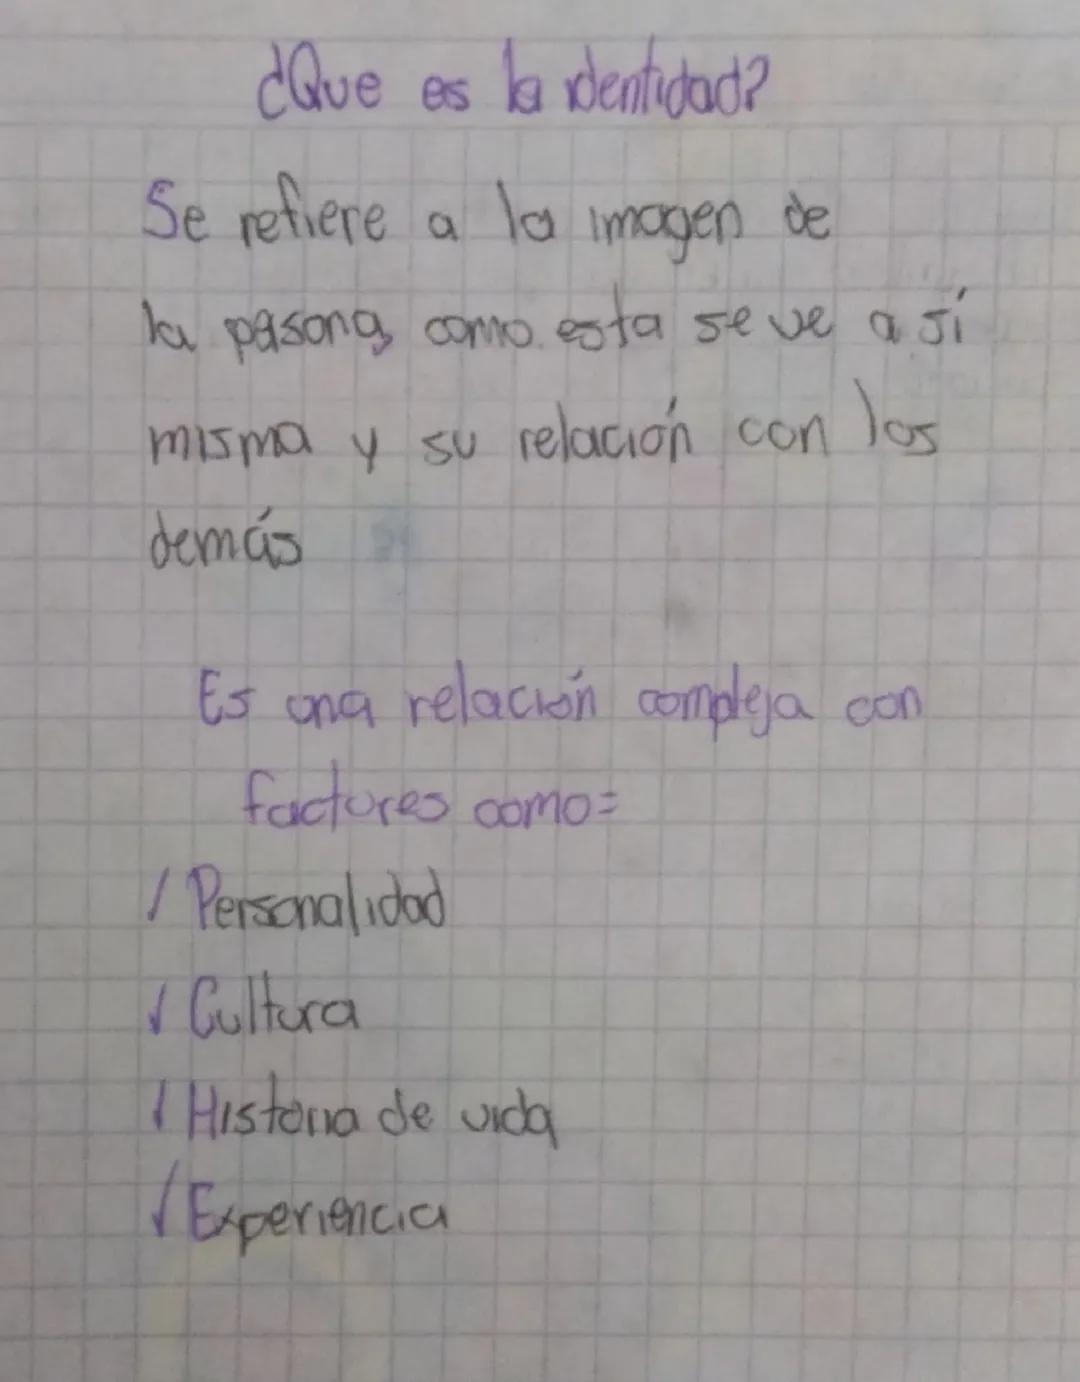 ¿Que es la identidad?
Se refiere a la imagen de
la pesona, como esta se ve a sí
misma y su relación con los
demás
Es una relación compleja con
factores como=
✓ Personalidad
✓ Cultura
✓ Historia de vida
✓ Experiencia